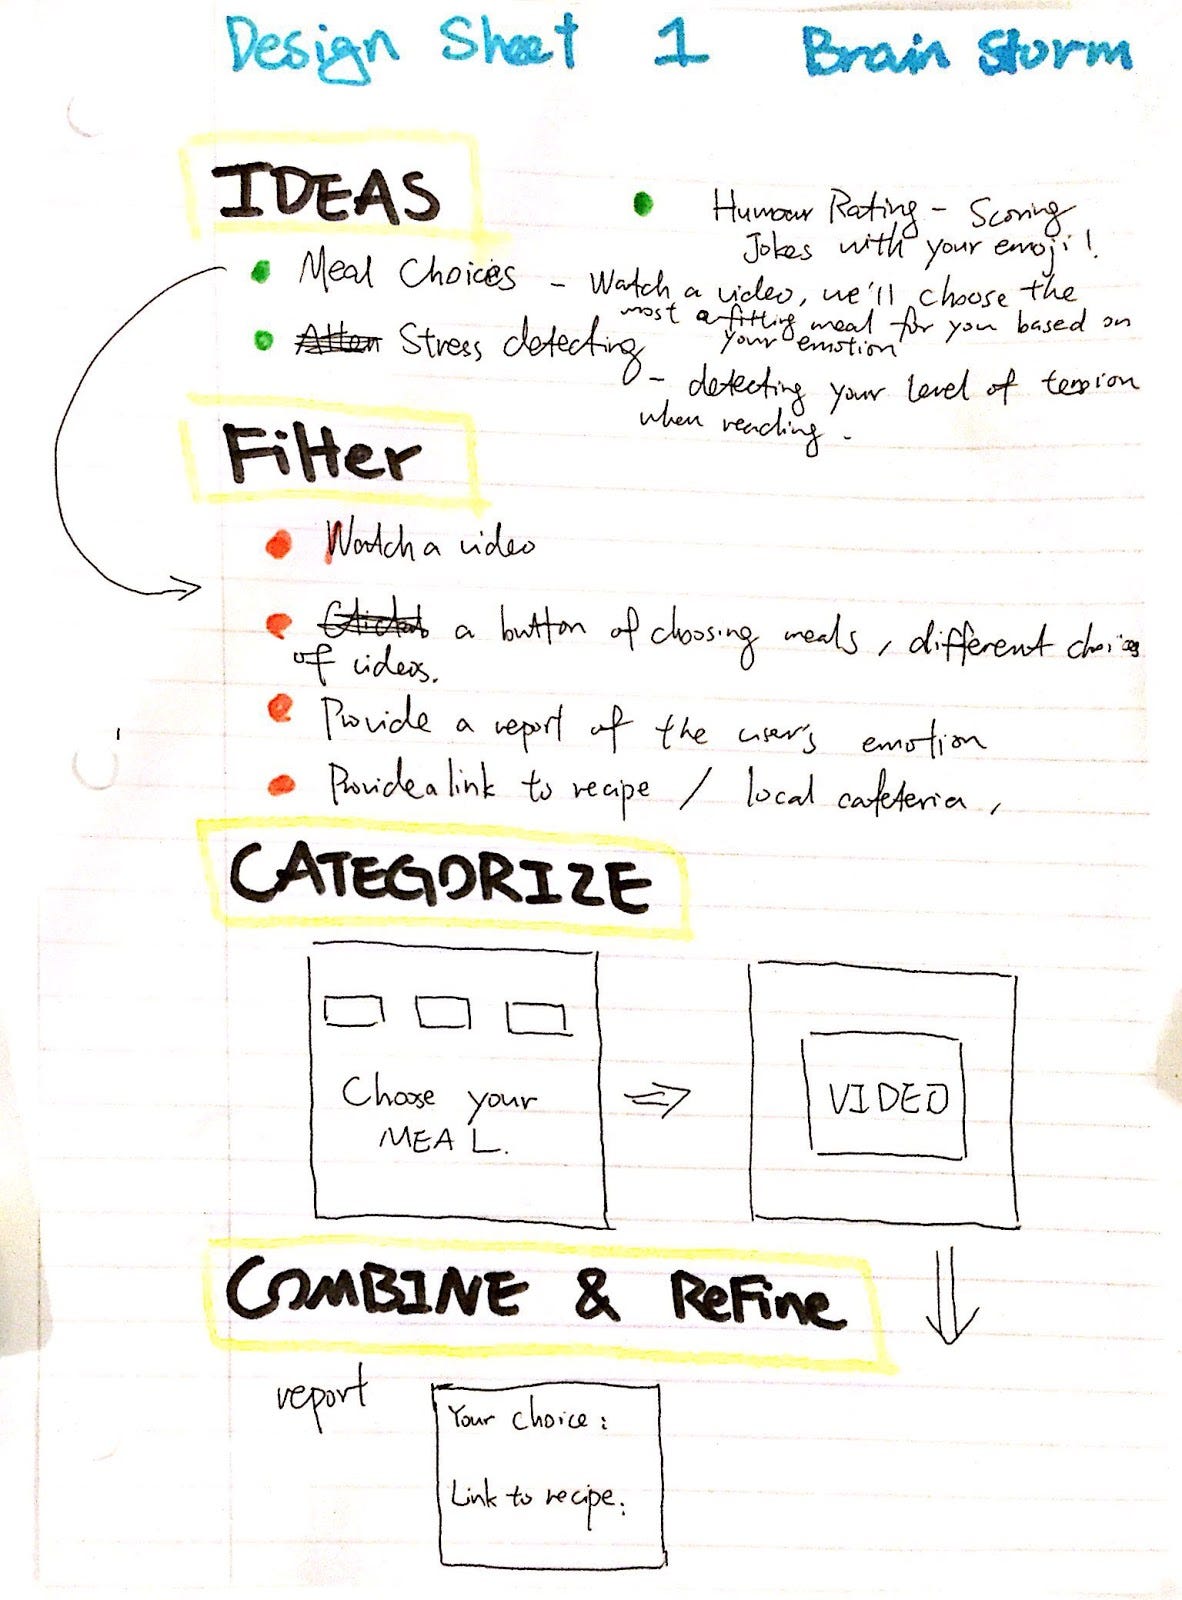 Design Sheet 1 Brain Storm
IDEAS
Humour Rating - Scoring
Jokes with your emoji!
Meal Choices - Watch a video, we'll choose the
most fitting meal for you based on
your emotion
Stress detecting
- detecting your level of tension
when reading.
Filter
Watch a video
a button of choosing meals, different choices
of videos.
Provide a report of the user's emotion
Provide a link to recipe / local cafeteria,
CATEGORIZE
Choose your
MEAL.
VIDEO
COMBINE & ReFine
report
Your choice:
Link to recipe: